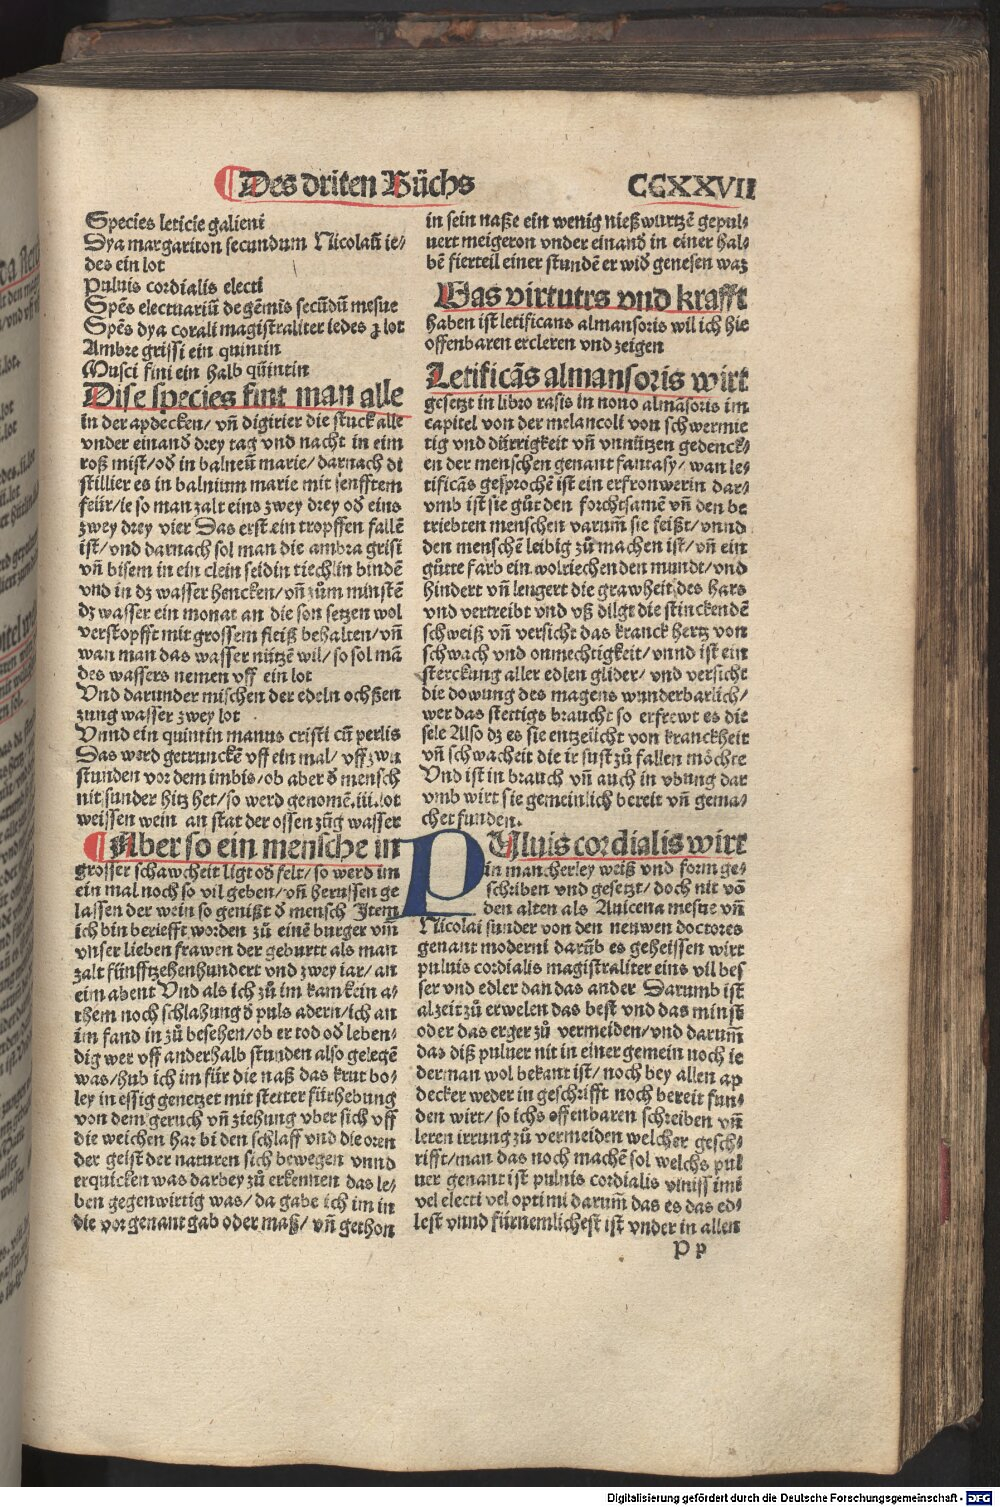 Des driten Bůchs
CCXXVII
Species leticie galieni
Dya margariton secundum Nicolaū ie/
des ein lot
Puluis cordialis electi
Spēs electuariū de gēmis secūdū mesue
Spēs dya corali magistraliter iedes ʒ lot
Ambre grissi ein quintin
Musci fini ein halb quintin
Dise species fint man alle
in der apdecken/ vñ digirier die stuck alle
vnder einand drey tag vnd nacht in eim
roß mist/od in balneū marie/darnach di
stillier es in balnium marie mit senfftem
feür/ie so man zalt eins zwey drey od eins
zwey drey vier Das erst ein tropffen fallē
ist/vnd darnach sol man die ambra grisi
vñ bisem in ein clein seidin tiechlin bindē
vnd in dz wasser hencken/vñ zům minstē
dz wasser ein monat an die son setzen wol
verstopfft mit grossem fleiß behalten/vñ
wan man das wasser nützē wil/so sol mā
des wassers nemen vff ein lot
Vnd darunder mischen der edeln ochßen
zung wasser zwey lot
Vnnd ein quintin manus cristi cū perlis
Das werd getrunckē vff ein mal/vff zwu
stunden vor dem imbis/ob aber d mensch
nit sunder hitz het/so werd genomē.iii.lot
weissen wein an stat der ossen zūg wasser
Aber so ein mensche in
grosser schawcheit ligt od felt/so werd im
ein mal noch so vil geben/vñ herussen ge
lassen der wein so genißt d mensch Item
ich bin beriefft worden zů einē burger vm̄
vnser lieben frawen der geburtt als man
zalt fünfftzehenhundert vnd zwey iar/an
eim abent Vnd als ich zů im kam kein a/
them noch schlahung d puls adern/ich an
im fand in zů besehen/ob er tod od leben/
dig wer vff anderhalb stunden also gelegē
was/hub ich im für die naß das krut bo/
ley in essig genetzet mit stetter fürhebung
von dem geruch vñ ziehung vber sich vff
die weichen har bi den schlaff vnd die oren
der geist der naturen sich bewegen vnnd
erquicken was darbey zů erkennen das le/
ben gegenwirtig was/da gabe ich im in
die vor genant gab oder maß/vñ gethon
in sein naße ein wenig nießwurtzē gepul/
uert meigeron vnder einand in einer hal/
bē fierteil einer stundē er wid genesen waz
Was virtutrs vnd krafft
haben ist letificans almansoris wil ich hie
offenbaren ercleren vnd zeigen
Letificās almansoris wirt
gesetzt in libro rasis in nono almāsoris im
capitel von der melancoli von schwermie
tig vnd dürrigkeit vñ vnnützen gedenck/
en der menschen genant fantasy/wan le/
tificās gesprochē ist ein erfronwerin dar/
vmb ist sie gůt den forchtsamē vñ den be
triebten menschen varum̄ sie feißt/vnnd
den menschē leibig zů machen ist/vñ ein
gůtte farb ein wolriechenden mundt/vnd
hindert vñ lengert die grawheit des hars
vnd vertreibt vnd vß dilgt die stinckendē
schweiß vñ versicht das kranck hertz von
schwach vnd onmechtigkeit/vnnd ist ein
sterckung aller edlen glider/vnd versicht
die dowung des magens wunderbarlich/
wer das stettigs braucht so erfrewt es die
sele Also dz es sie entzeücht von kranckheit
vñ schwacheit die ir sust zů fallen möchte
Vnd ist in brauch vñ auch in vbung dar
vmb wirt sie gemeinlich bereit vñ gema/
chet funden.
PUluis cordialis wirt
in mancherley weiß vnd form ge/
schriben vnd gesetzt/doch nit vō
den alten als Auicena mesue vñ
Nicolai sunder von den neuwen doctores
genant moderni darūb es geheissen wirt
puluis cordialis magistraliter eins vil bes
ser vnd edler dan das ander Darumb ist
alzeit zů erwelen das best vnd das minst
oder das erger zů vermeiden/vnd darum̄
das diß puluer nit in einer gemein noch ie
derman wol bekant ist/noch bey allen ap
decker weder in geschrifft noch bereit fun/
den wirt/so ichs offenbaren schreiben vñ
leren irrung zů vermeiden welcher gesch/
rifft/man das noch machē sol welchs pul
uer genant ist puluis cordialis viniss imi
vel electi vel optimi darum̄ das es das ed/
lest vnnd fürnemlichest ist vnder in allen
P p
Digitalisierung gefördert durch die Deutsche Forschungsgemeinschaft - DFG